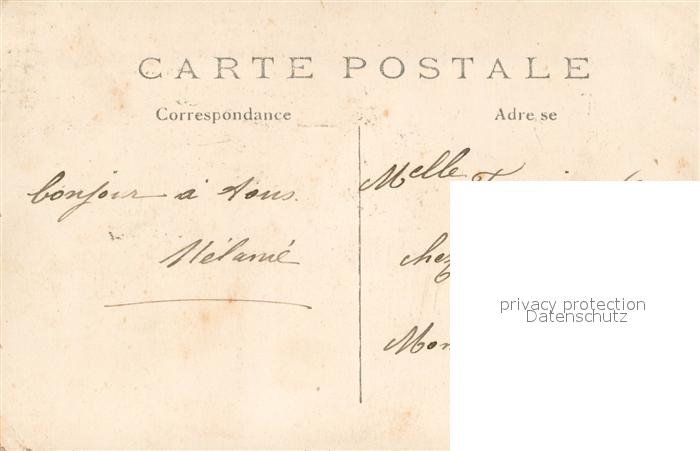 CARTE POSTALE
Correspondance
Adresse
bonjour à tous.
Mélanie
Melle
chez
privacy protection
Datenschutz